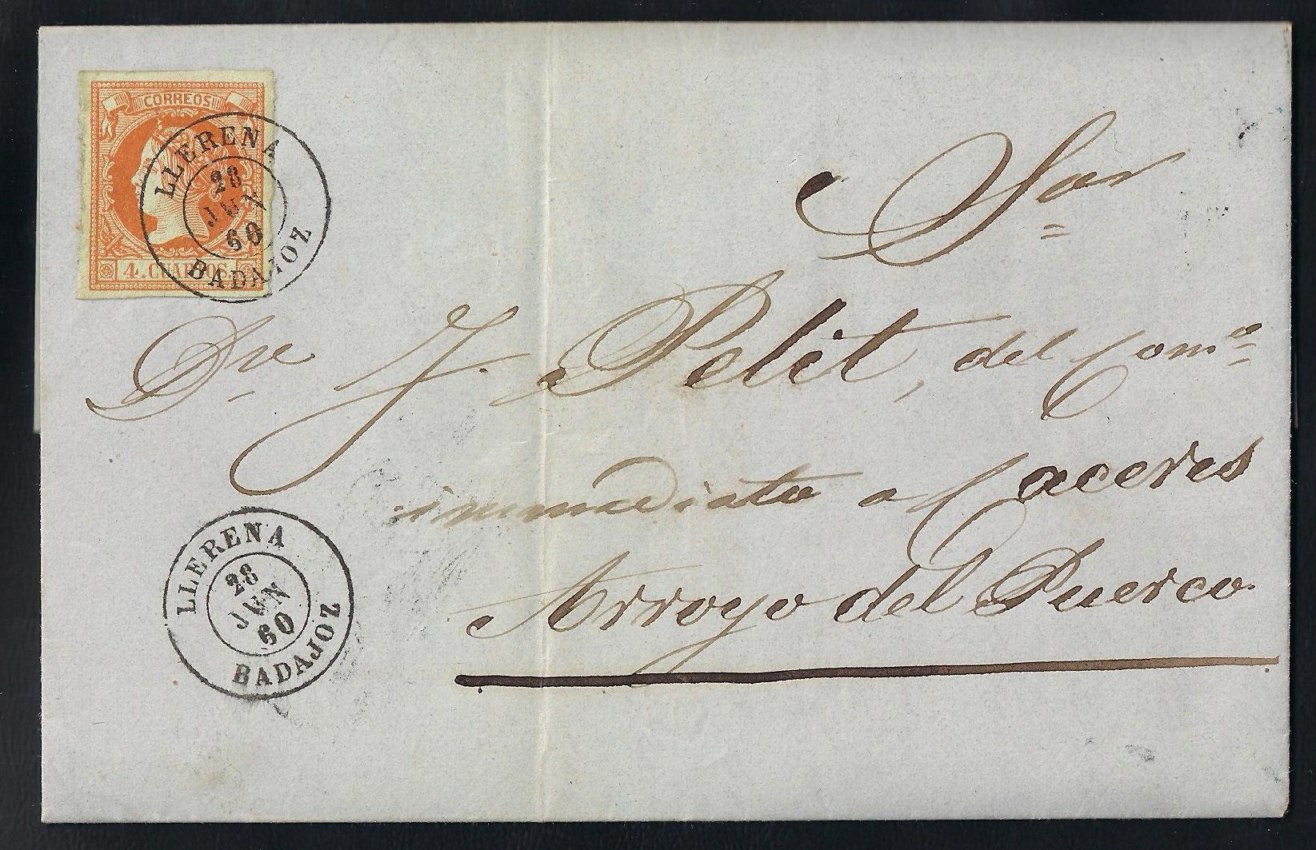 CORREOS
4. CUARTOS
LLERENA
28
JUN
60
BADAJOZ
Sor
Dn J. Petit, del Como
immediato a Caceres
Arroyo del Puerco
LLERENA
28
JUN
60
BADAJOZ